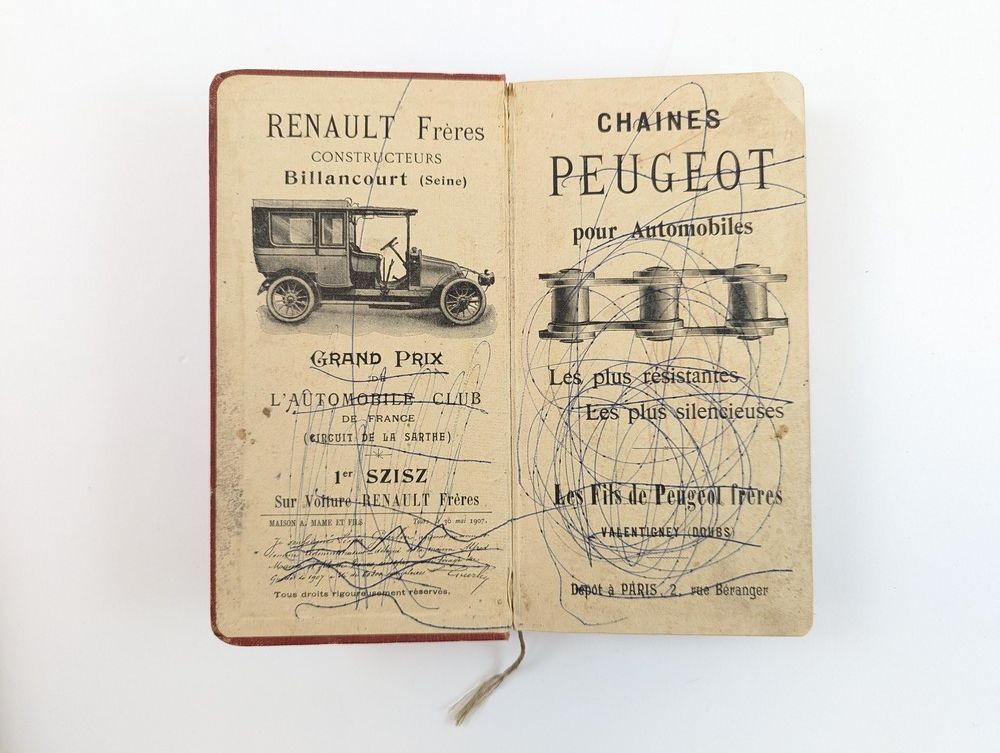 RENAULT Frères
CONSTRUCTEURS
Billancourt (Seine)
GRAND PRIX
DE
L'AUTOMOBILE CLUB
DE FRANCE
(CIRCUIT DE LA SARTHE)
1er SZISZ
Sur Voiture RENAULT Frères
MAISON A. MAME ET FILS Tours, 30 mai 1907.
Tous droits rigoureusement réservés.
CHAINES
PEUGEOT
pour Automobiles
Les plus résistantes
Les plus silencieuses
Les Fils de Peugeot frères
VALENTIGNEY (DOUBS)
Dépôt à PARIS, 2, rue Béranger